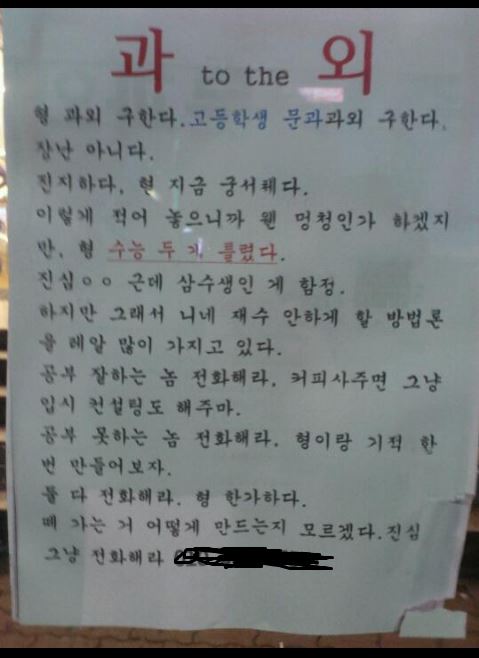 과 to the 외
형 과외 구한다.고등학생 문과과외 구한다.
장난 아니다.
진지하다. 현 지금 궁서체다.
이렇게 적어 놓으니까 웬 멍청인가 하겠지
만, 형 수능 두 개 틀렸다.
진심ㅇㅇ 근데 삼수생인 게 함정.
하지만 그래서 니네 재수 안하게 할 방법론
을 레알 많이 가지고 있다.
공부 잘하는 놈 전화해라. 커피사주면 그냥
입시 컨설팅도 해주마.
공부 못하는 놈 전화해라. 형이랑 기적 한
번 만들어보자.
둘 다 전화해라. 형 한가하다.
떼 가는 거 어떻게 만드는지 모르겠다.진심
그냥 전화해라